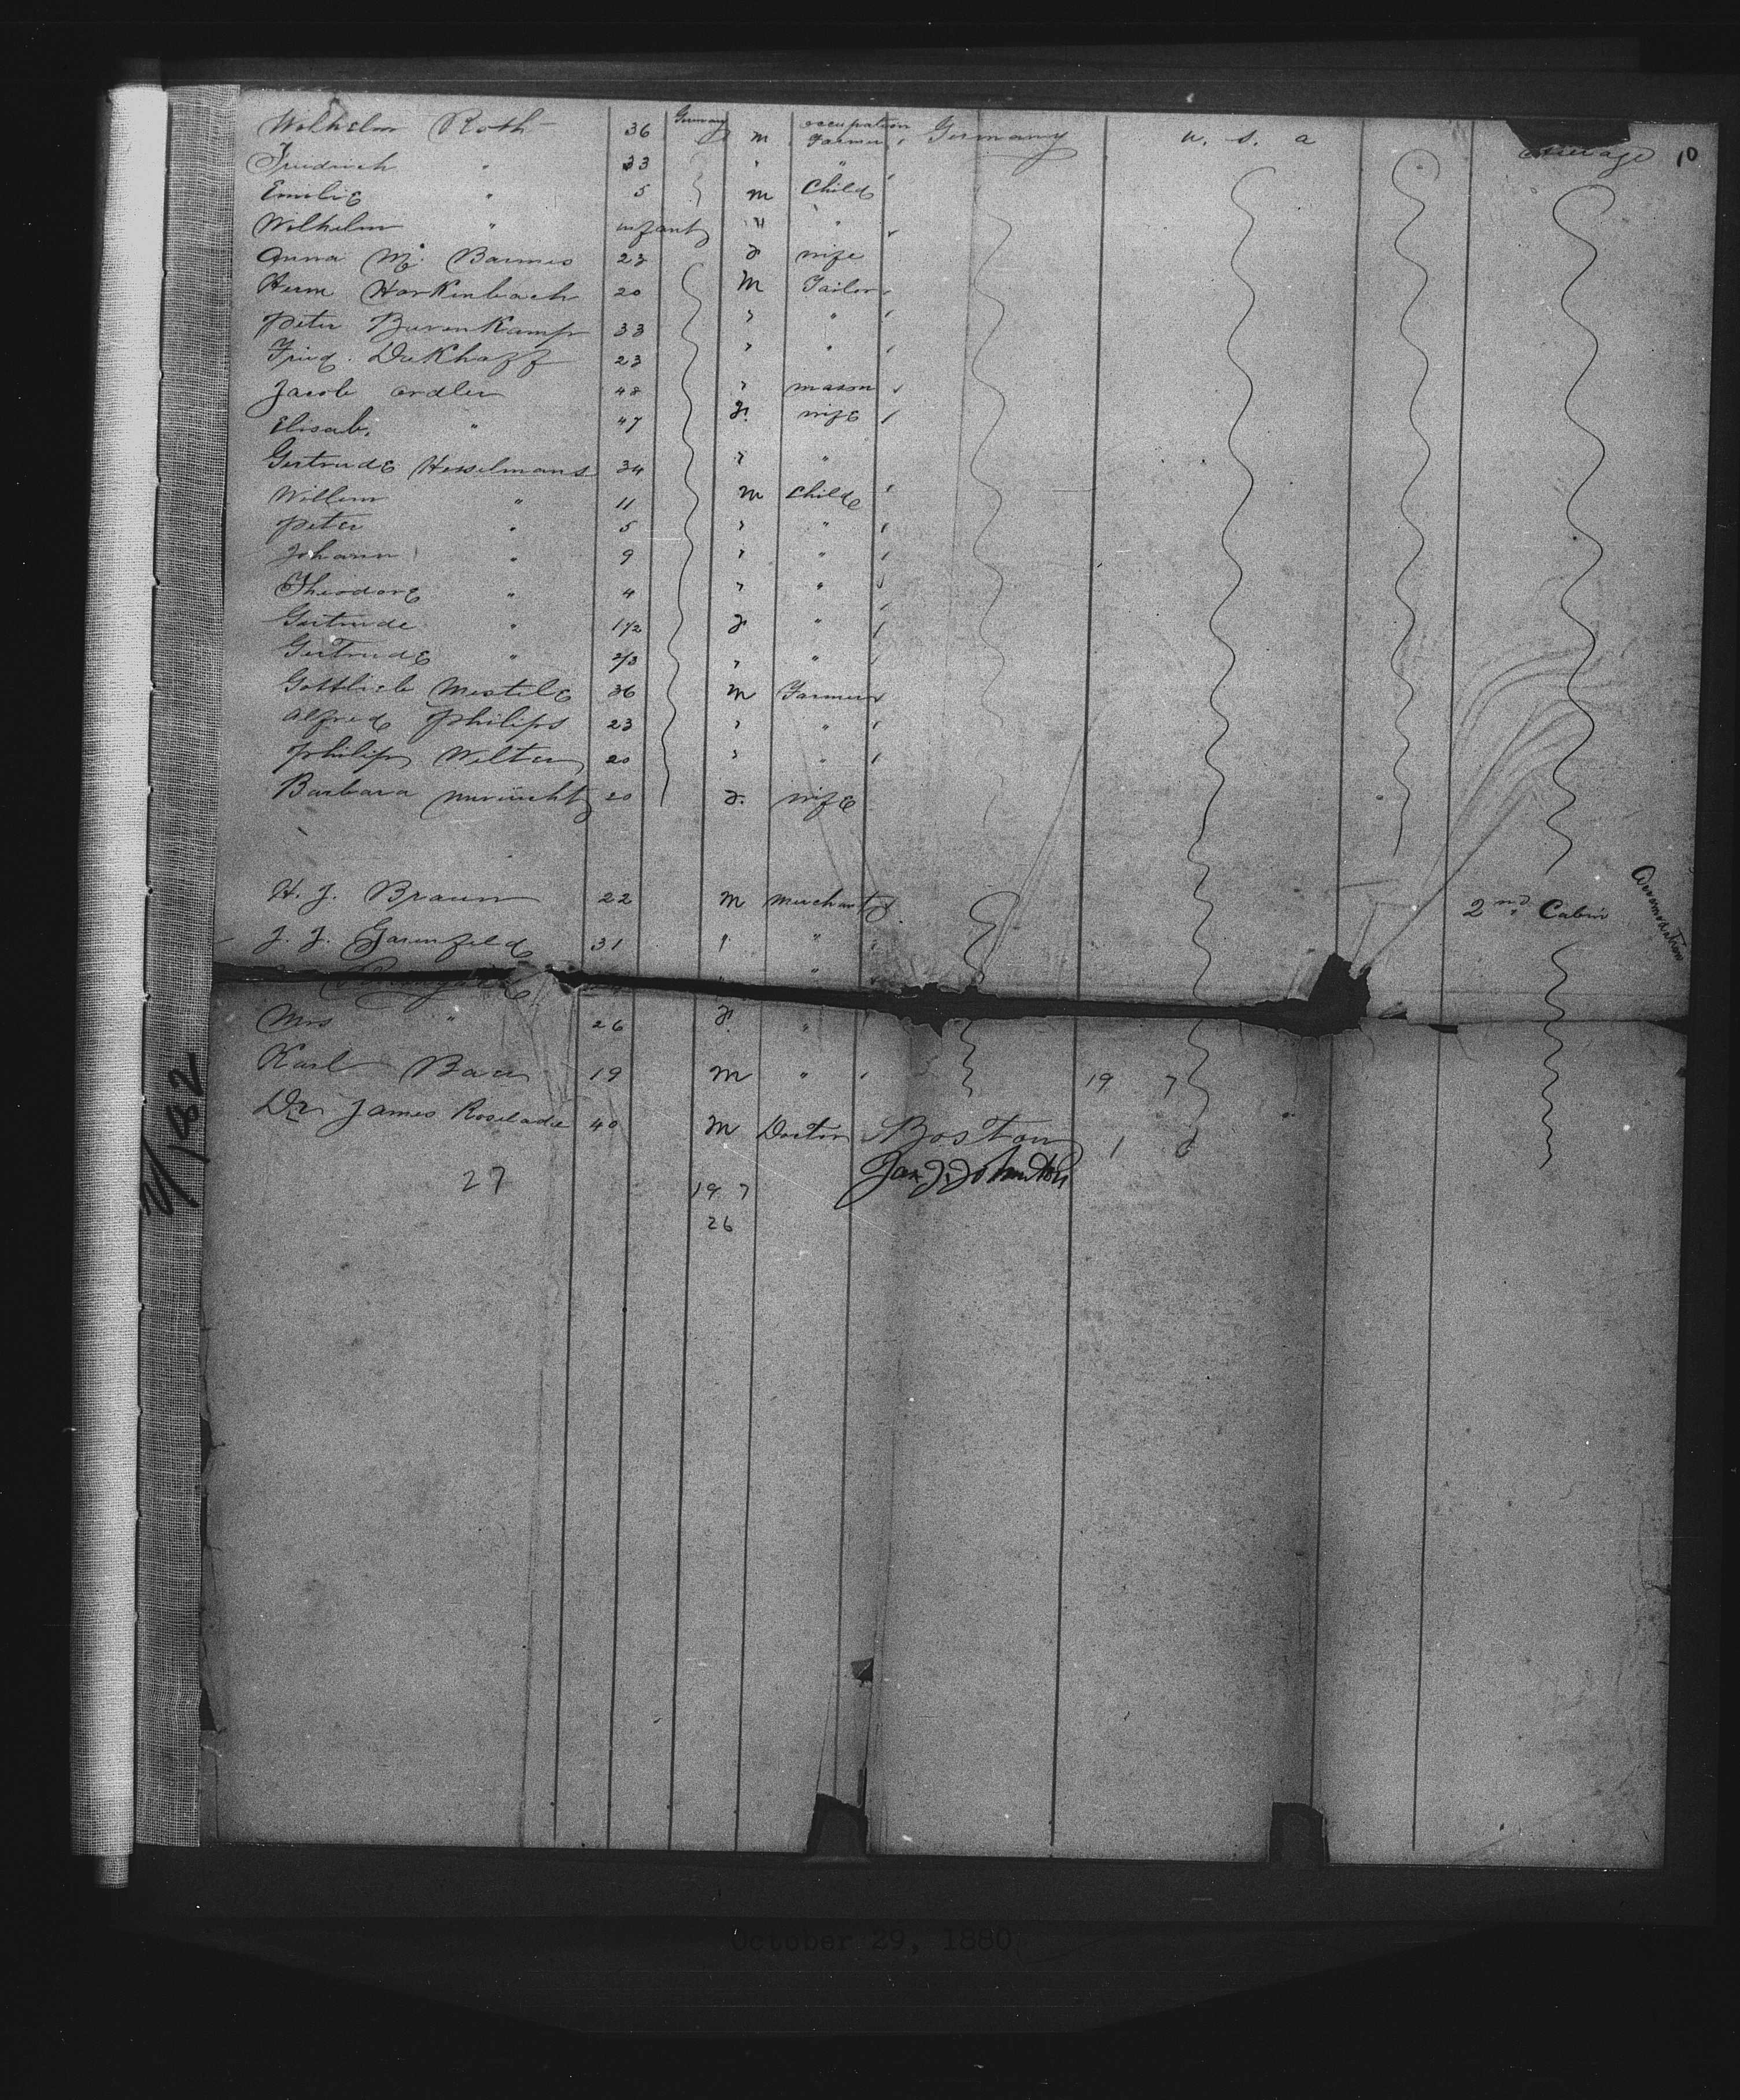 Wilhelm Roth 36 Germany m occupation Farmer Germany u. s. a steerage 10
Friedrich " 33 " "
Emilie " 5 m Child
Wilhelm " infant " "
Anna M. Barmes 23 F wife
Herm Harkenbach 20 M Tailor
Peter Burenkamp 33 " "
Fried. Dukhoff 23 " "
Jacob Ordler 48 " mason
Elisab. " 47 F. wife
Gertrude Hesselmans 34 " "
Willem " 11 m Child
Peter " 5 " "
Johann " 9 " "
Theodore " 4 " "
Gertrude " 1 1/2 F "
Gertrude " 2/3 " "
Gottlieb Mestele 36 m Farmer
Alfred Philips 23 " "
Philip Welter 20 " "
Barbara 20 F. wife
H. J. Braun 22 M Merchant 2nd Cabin
Accomodation
J. J. Garenfeld 31 " "
Mrs " 26 F. "
Karl Baer 19 M " 19 7
Dr James Roseladie 40 M Doctor Boston 1 6
Jas. J. Johnston
27 19 7
26
October 29, 1880